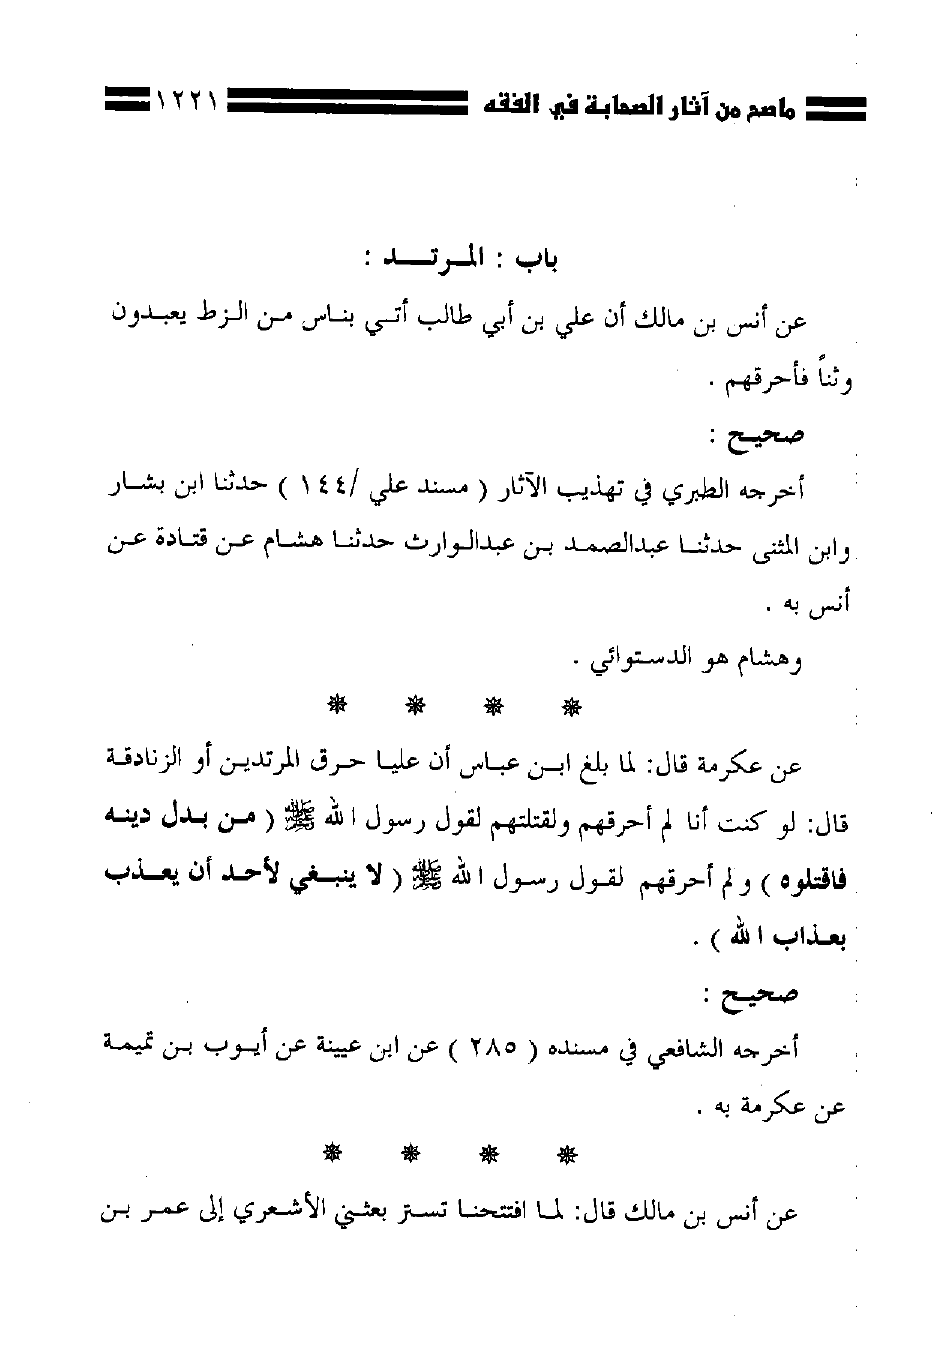 ماصح من آثار الصحابة في الفقه ١٢٢١
باب : المرتد :
عن أنس بن مالك أن علي بن أبي طالب أتي بناس من الزط يعبدون
وثناً فأحرقهم .
صحيح :
أخرجه الطبري في تهذيب الآثار ( مسند علي /١٤٤ ) حدثنا ابن بشار
وابن المثنى حدثنا عبدالصمد بن عبدالوارث حدثنا هشام عن قتادة عن
أنس به .
وهشام هو الدستوائي .
عن عكرمة قال: لما بلغ ابن عباس أن عليا حرق المرتدين أو الزنادقة
قال: لو كنت أنا لم أحرقهم ولقتلتهم لقول رسول الله ﷺ ( من بدل دينه
فاقتلوه ) ولم أحرقهم لقول رسول الله ﷺ ( لا ينبغي لأحد أن يعذب
بعذاب الله ) .
صحيح :
أخرجه الشافعي في مسنده ( ٢٨٥ ) عن ابن عيينة عن أيوب بن تميمة
عن عكرمة به .
عن أنس بن مالك قال: لما افتتحنا تستر بعثني الأشعري إلى عمر بن